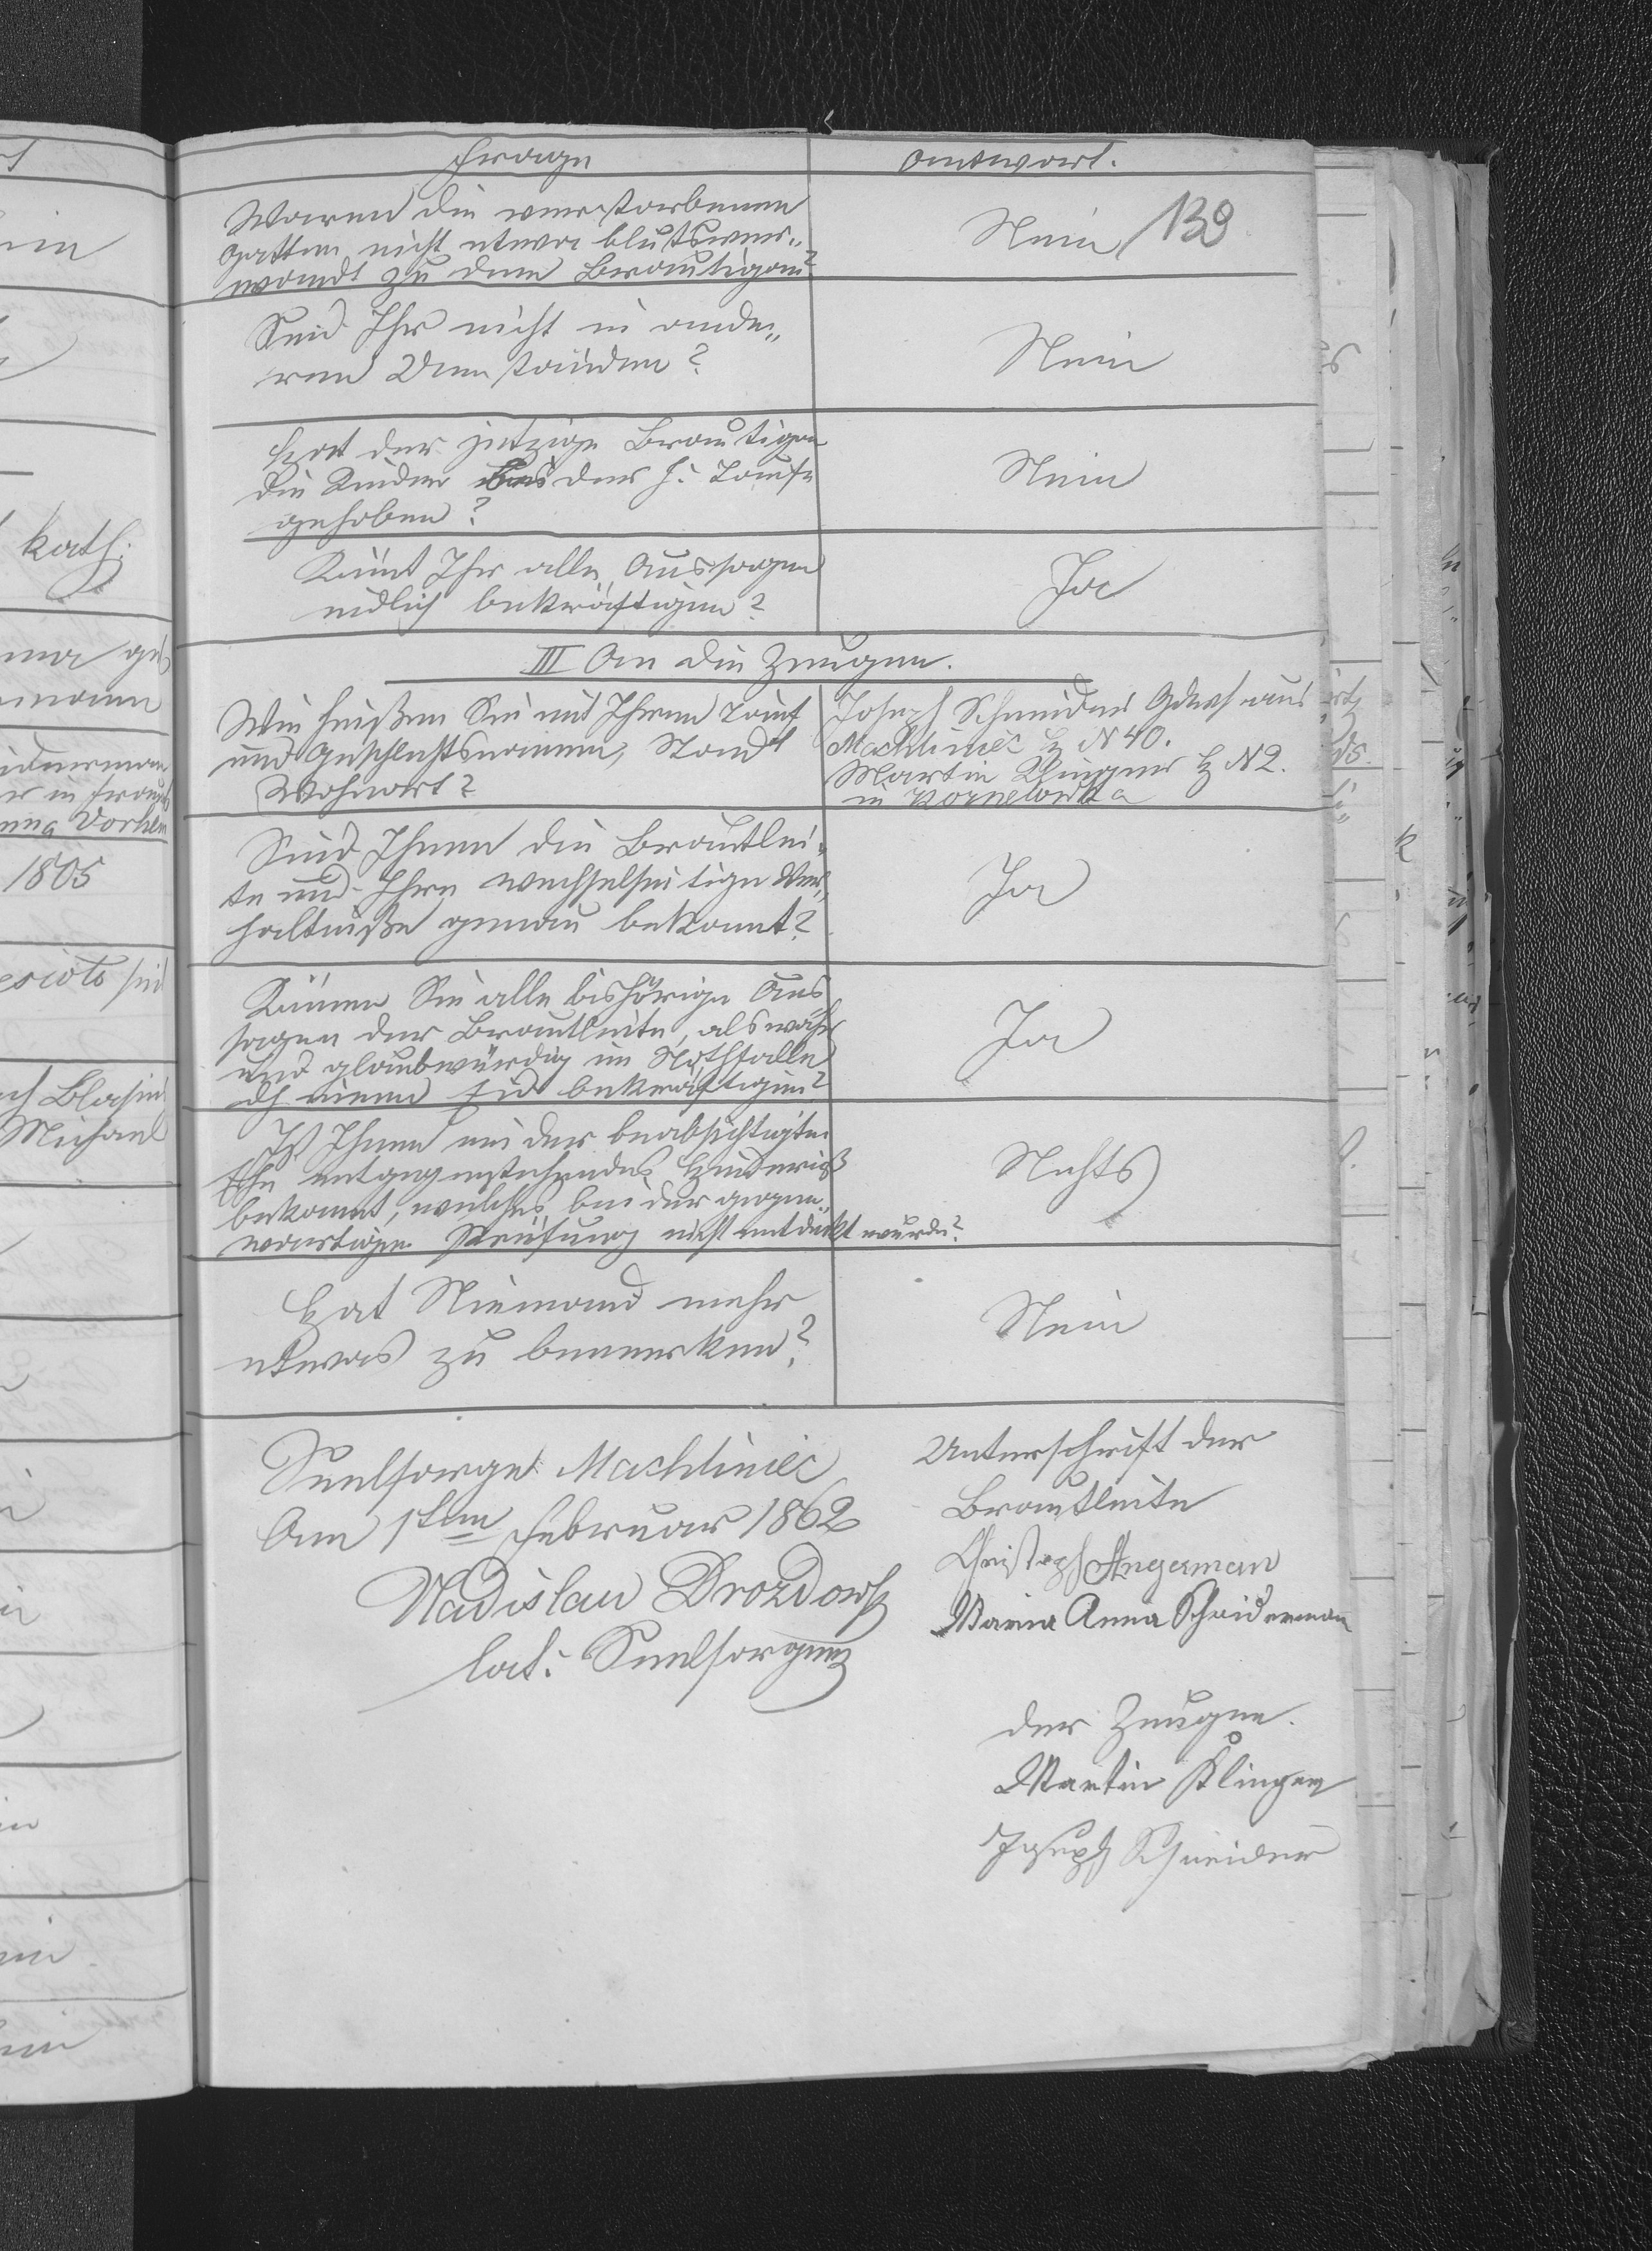 Frage
Antwort.
Waren die verstorbenen
Gatten nicht etwa blutsver„
wandt zu dem Brautigam?
Nein
139
Seid Ihr nicht in ande„
ren Umständen?
Nein
Hat der jetzige Brautigam
die Kinder bei der h: Taufe
gehoben?
Nein
Könnt Ihr alle Aussagen
eidlich bekräftigen?
Ja
III An die Zeugen.
Wie heißen Sie mit Ihrem Tauf
und Geschlechtsnamen, Stand
Wohnort?
Joseph Schneider aus
Machliniec H N 40.
Martin Klinger H N 2.
in Kornelowka
Sind Ihnen die Brautleu„
te und Ihre wechselseitige Ver„
haltniße genau bekannt?
Ja
Können Sie alle bishörige Aus
sagen der Brautleute, als wahr
und glaubwürdig im Nothfalle
einem Eid bekräftigen?
Ja
Ist Ihnen ein der beabsichtigten
Ehe entgegenstehendes Hinderniß
bekannt, welches bei der gegen„
wartigen Prüfung nicht entdeckt wurde?
Nichts
Hat Niemand mehr
etwas zu bemerken?
Nein
Seelsorge Machliniec
Am 1ten Februar 1862
Wladislau Drozdowski
lat: Seelsorger
Unterschrift der
Brautleute
Christoph Angerman
Maria Anna Schniderman
der Zeugen.
Martin Klinger
Joseph Schneider
kath:
1805
Michael